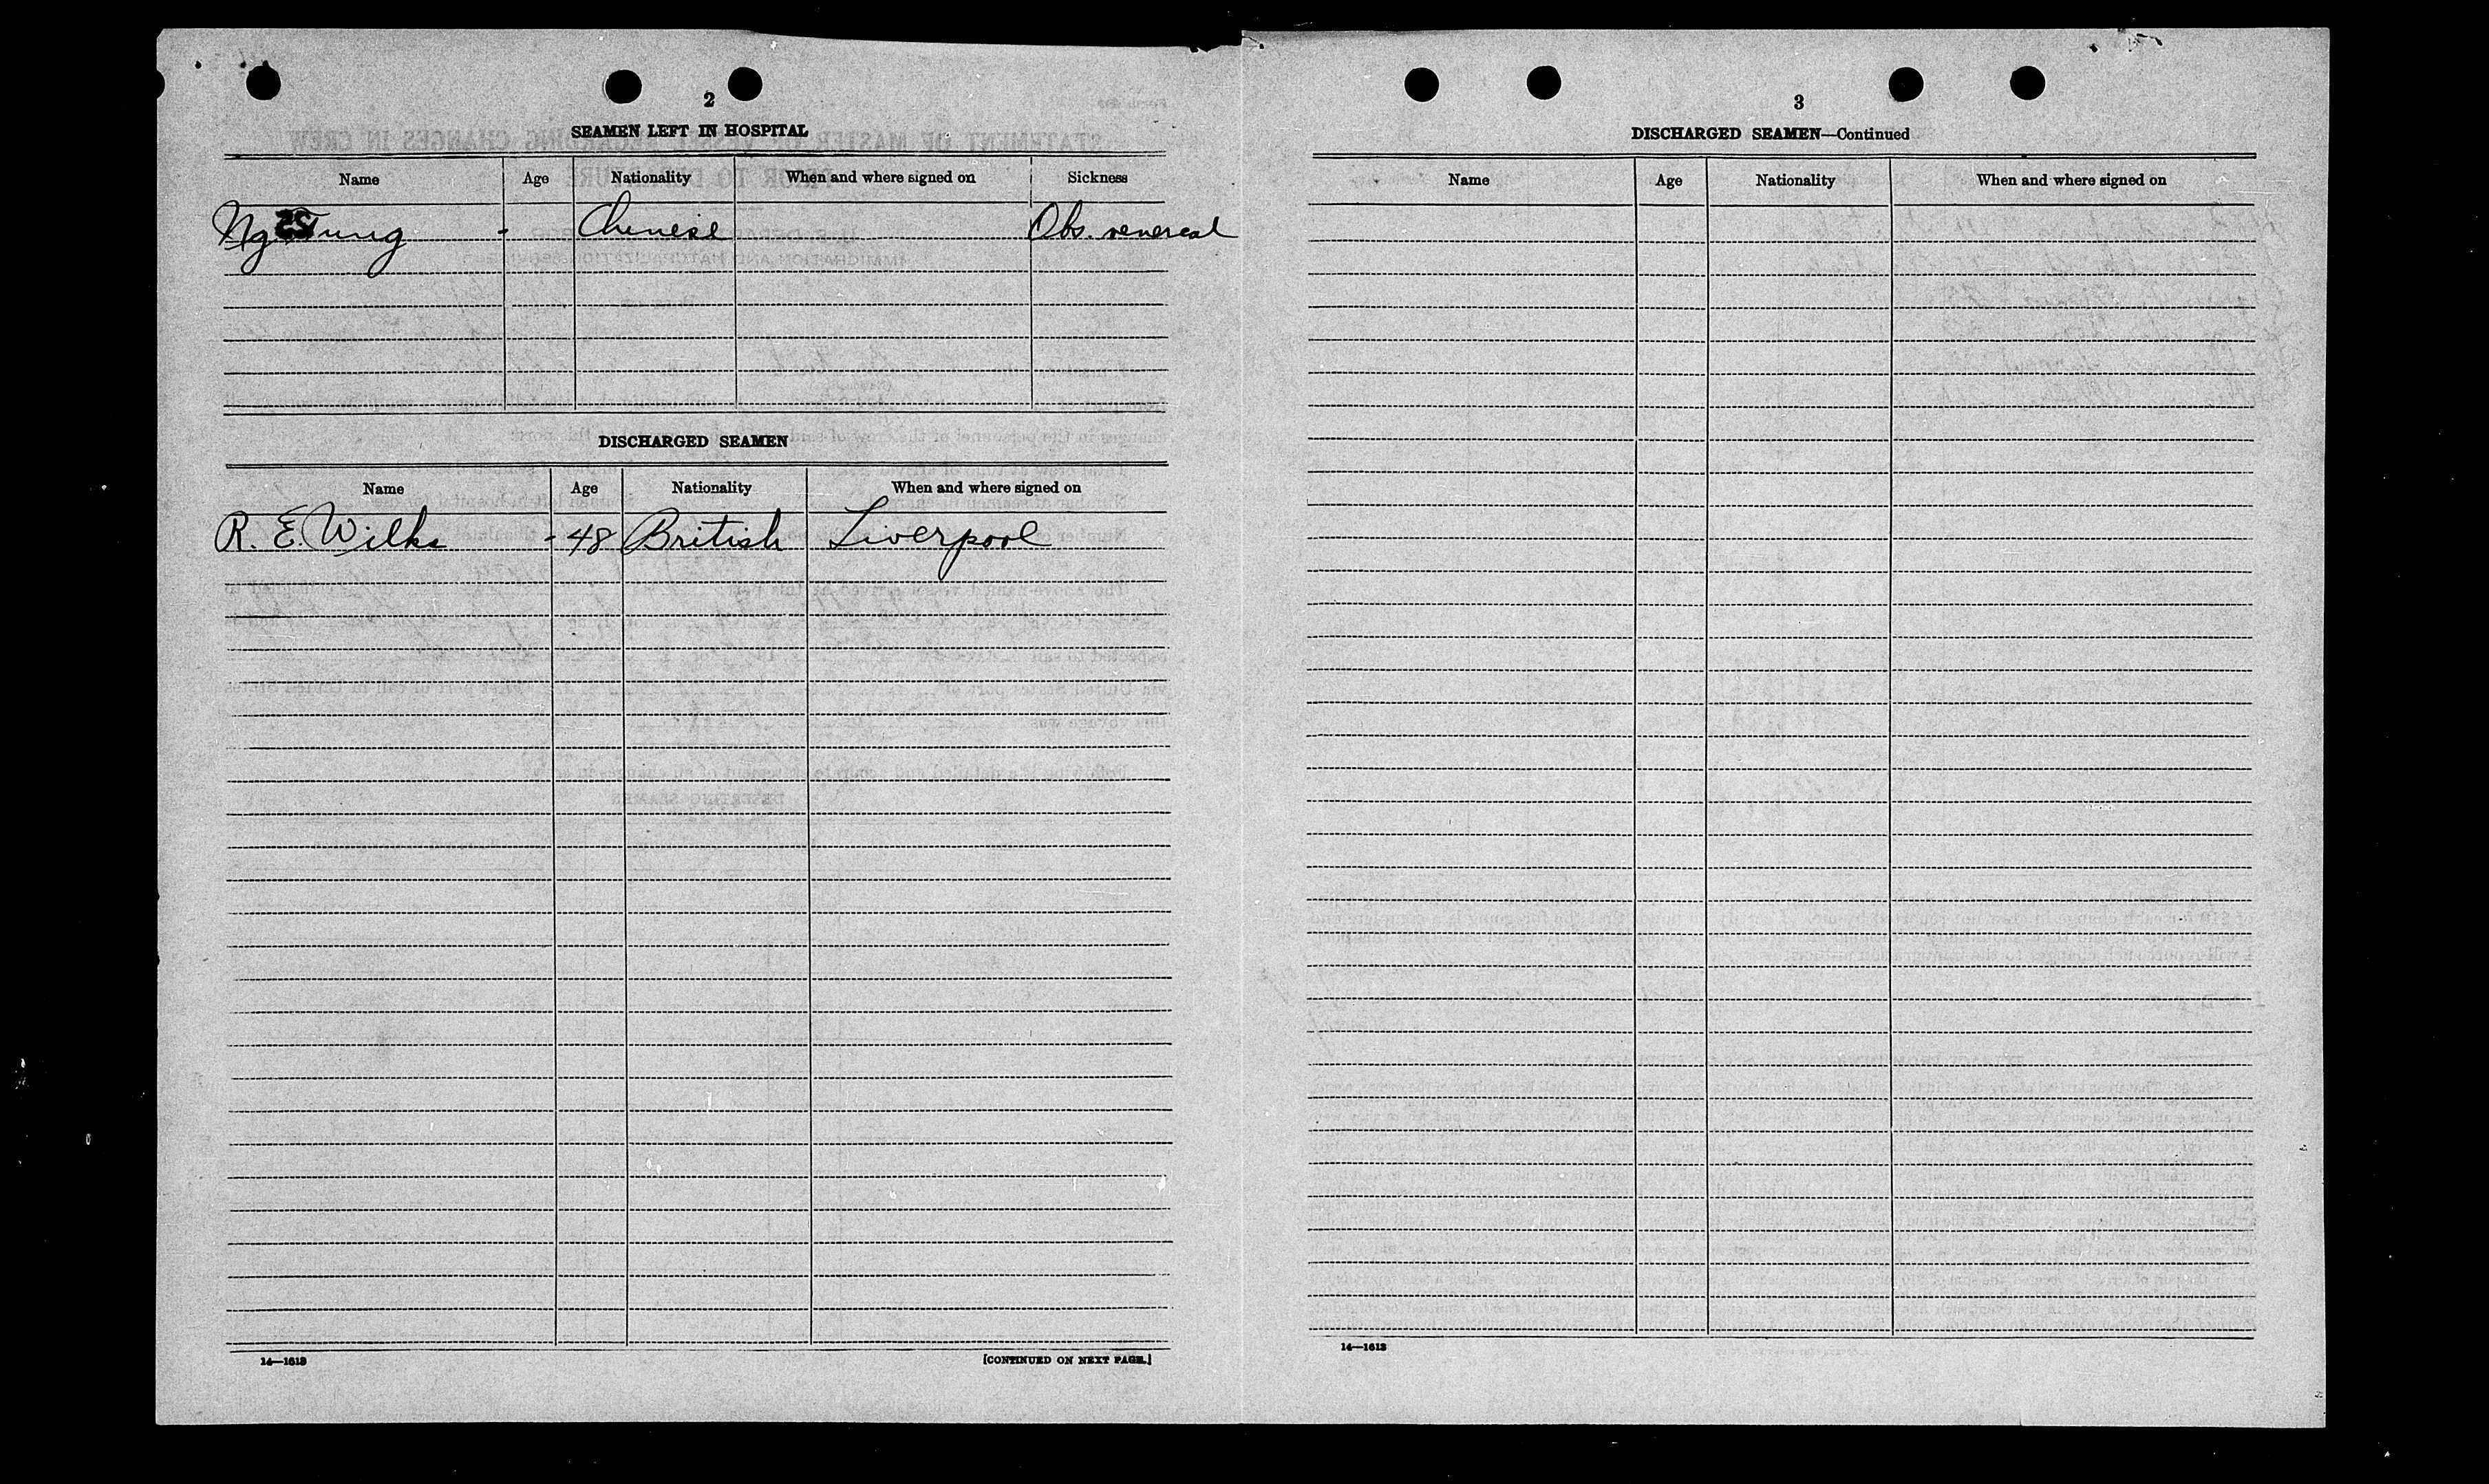 2
SEAMEN LEFT IN HOSPITAL
Name Age Nationality When and where signed on Sickness
Ng Tung - Chinese Obs. venereal
DISCHARGED SEAMEN
Name Age Nationality When and where signed on
R. E. Wilks - 48 British Liverpool
14—1613
[CONTINUED ON NEXT PAGE.]
3
DISCHARGED SEAMEN—Continued
Name Age Nationality When and where signed on
14—1613